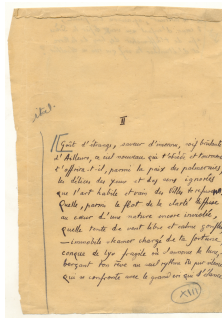 ital.
II
Goût d'étrange, saveur d'inconnu, soif brûlante
d'Ailleurs, ce ciel nouveau qui t'obsède et tourmente
s'offrira-t-il, parmi la paix des
les délices des yeux et des ignorés
que l'art habile et vain des villes te refuse,
Quelle, parmi le flot de la clarté diffuse
au cœur d'une nature encore inviolée,
quelle tente de vent libre et calme gonflée
— immobile steamer chargé de ta fortune,
conque de lys fragile où s'annonce la lune,
berçant ton rêve au seul rythme du pur silence
qui se confronte avec le grand cri que d'
XIII